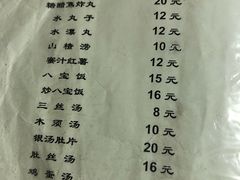 糖醋熏炸丸 20元
水丸子 12元
水瀑丸 12元
山楂涝 10元
蜜汁红薯 12元
八宝饭 15元
炒八宝饭 16元
三丝汤 8元
木须汤 10元
银汤肚片 20元
肚丝汤 16元
鸡蛋汤